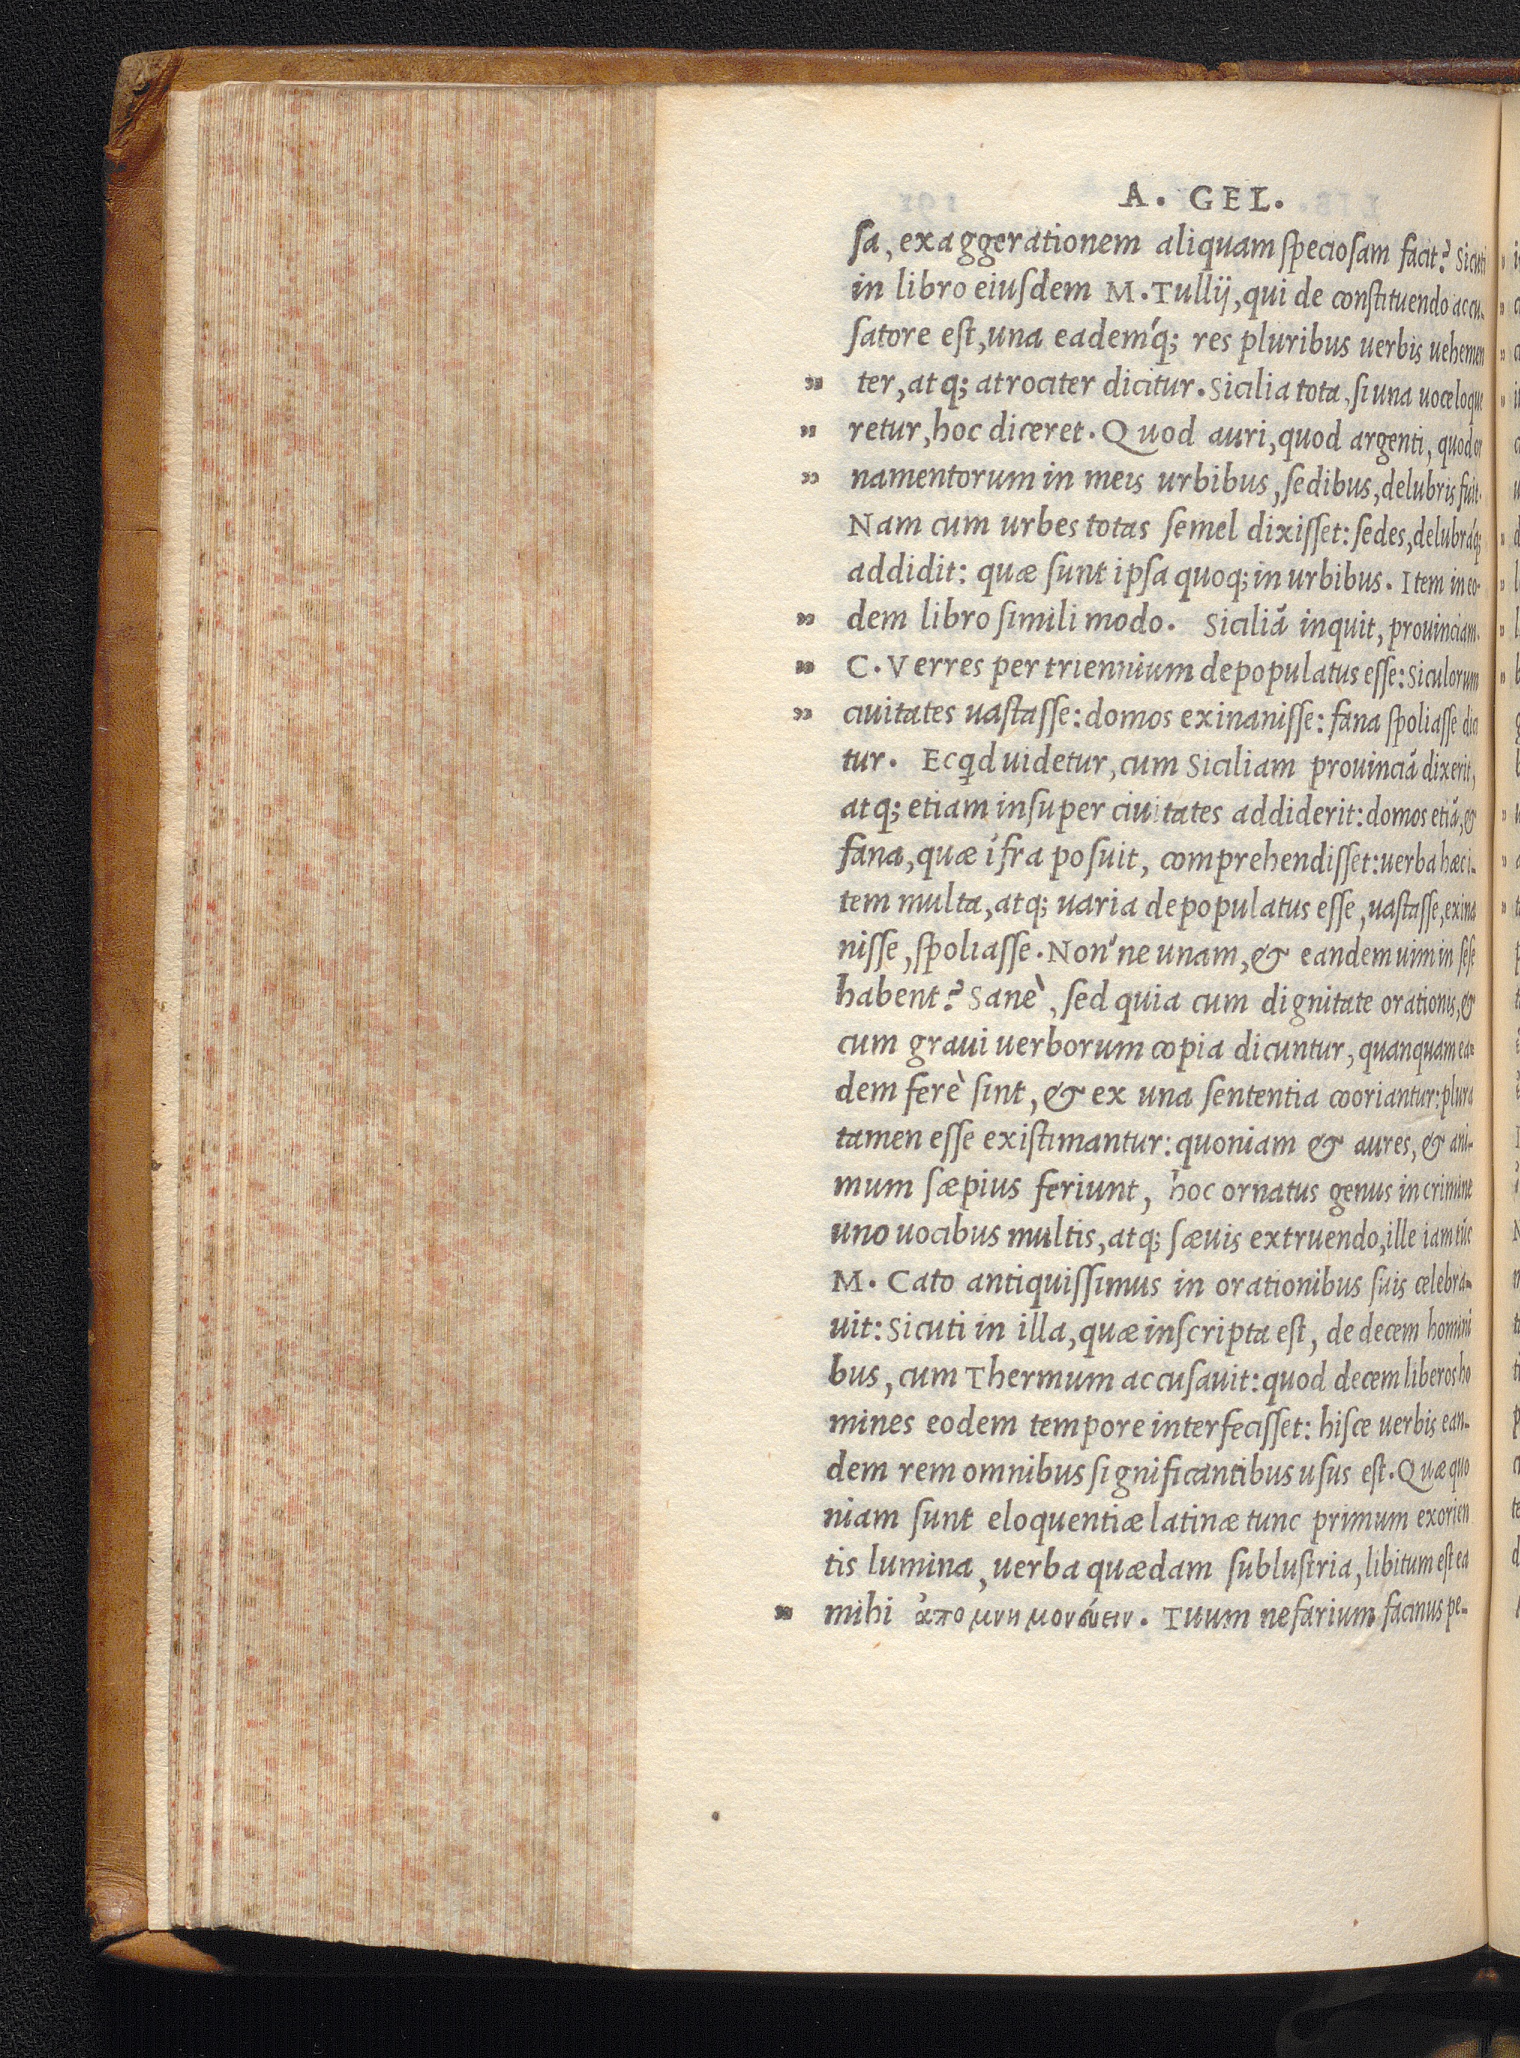 A. GEL.
sa, exaggerationem aliquam speciosam facit? Sicuti
in libro eiusdem M. Tullij, qui de constituendo accu-
satore est, una eadeḿq; res pluribus uerbis uehemen
„ ter, atq; atrociter dicitur. Sicilia tota, si una uoce loque
„ retur, hoc diceret. Quod auri, quod argenti, quod or
„ namentorum in meis urbibus, sedibus, delubris fuit.
Nam cum urbes totas semel dixisset: sedes, delubráq;
addidit: quæ sunt ipsa quoq; in urbibus. Item in eo-
„ dem libro simili modo. Siciliā inquit, prouinciam.
„ C. Verres per triennium depopulatus esse: Siculorum
„ ciuitates uastasse: domos exinanisse: fana spoliasse dici
tur. Ecqd uidetur, cum Siciliam prouinciā dixerit,
atq; etiam insuper ciuitates addiderit: domos etiā, &
fana, quæ ĩfra posuit, comprehendisset: uerba hæc i-
tem multa, atq; uaria depopulatus esse, uastasse, exina
nisse, spoliasse. Non'ne unam, & eandem uim in sese
habent? Sanè, sed quia cum dignitate orationis, &
cum graui uerborum copia dicuntur, quanquam ea-
dem ferè sint, & ex una sententia cooriantur: plura
tamen esse existimantur: quoniam & aures, & ani-
mum sæpius feriunt, hoc ornatus genus in crimine
uno uocibus multis, atq; sæuis extruendo, ille iam tūc
M. Cato antiquissimus in orationibus suis celebra-
uit: Sicuti in illa, quæ inscripta est, de decem homini
bus, cum Thermum accusauit: quod decem liberos ho
mines eodem tempore interfecisset: hisce uerbis ean-
dem rem omnibus significantibus usus est. Quæ quo
niam sunt eloquentiæ latinæ tunc primum exorien
tis lumina, uerba quædam sublustria, libitum est ea
„ mihi ἀπομνημονεύειν. Tuum nefarium facinus pe-